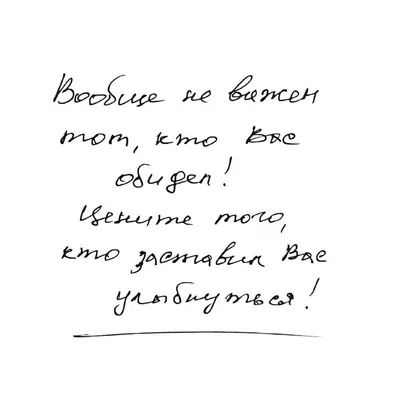 Вообще не важен
тот, кто Вас
обидел!
Цените того,
кто заставил Вас
улыбнуться!